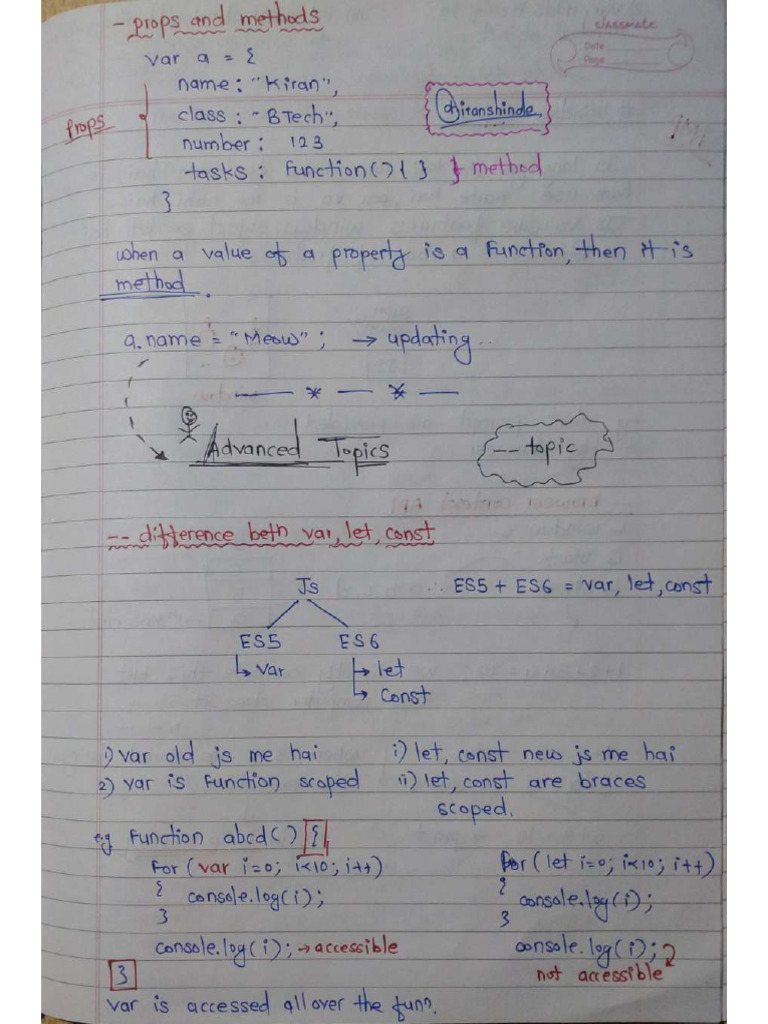 - props and methods
classmate
Date
Page
var a = {
name: "Kiran",
class: "BTech",
number: 123
tasks: function(){ } } method
}
Props
@iranshinde
when a value of a property is a function, then it is
method.
a.name = "Meow"; → updating..
Advanced Topics
-- topic
-- difference betn var, let, const
Js
∴ ES5 + ES6 = var, let, const
ES5 ES6
↳ var
↳ let
↳ const
1) var old js me hai
2) var is function scoped
i) let, const new js me hai
ii) let, const are braces
scoped.
e.g function abcd() {
for (var i=0; i<10; i++)
{ console.log(i);
}
console.log(i); → accessible
}
for (let i=0; i<10; i++)
{ console.log(i);
}
console.log(i);
not accessible
var is accessed all over the fun?.